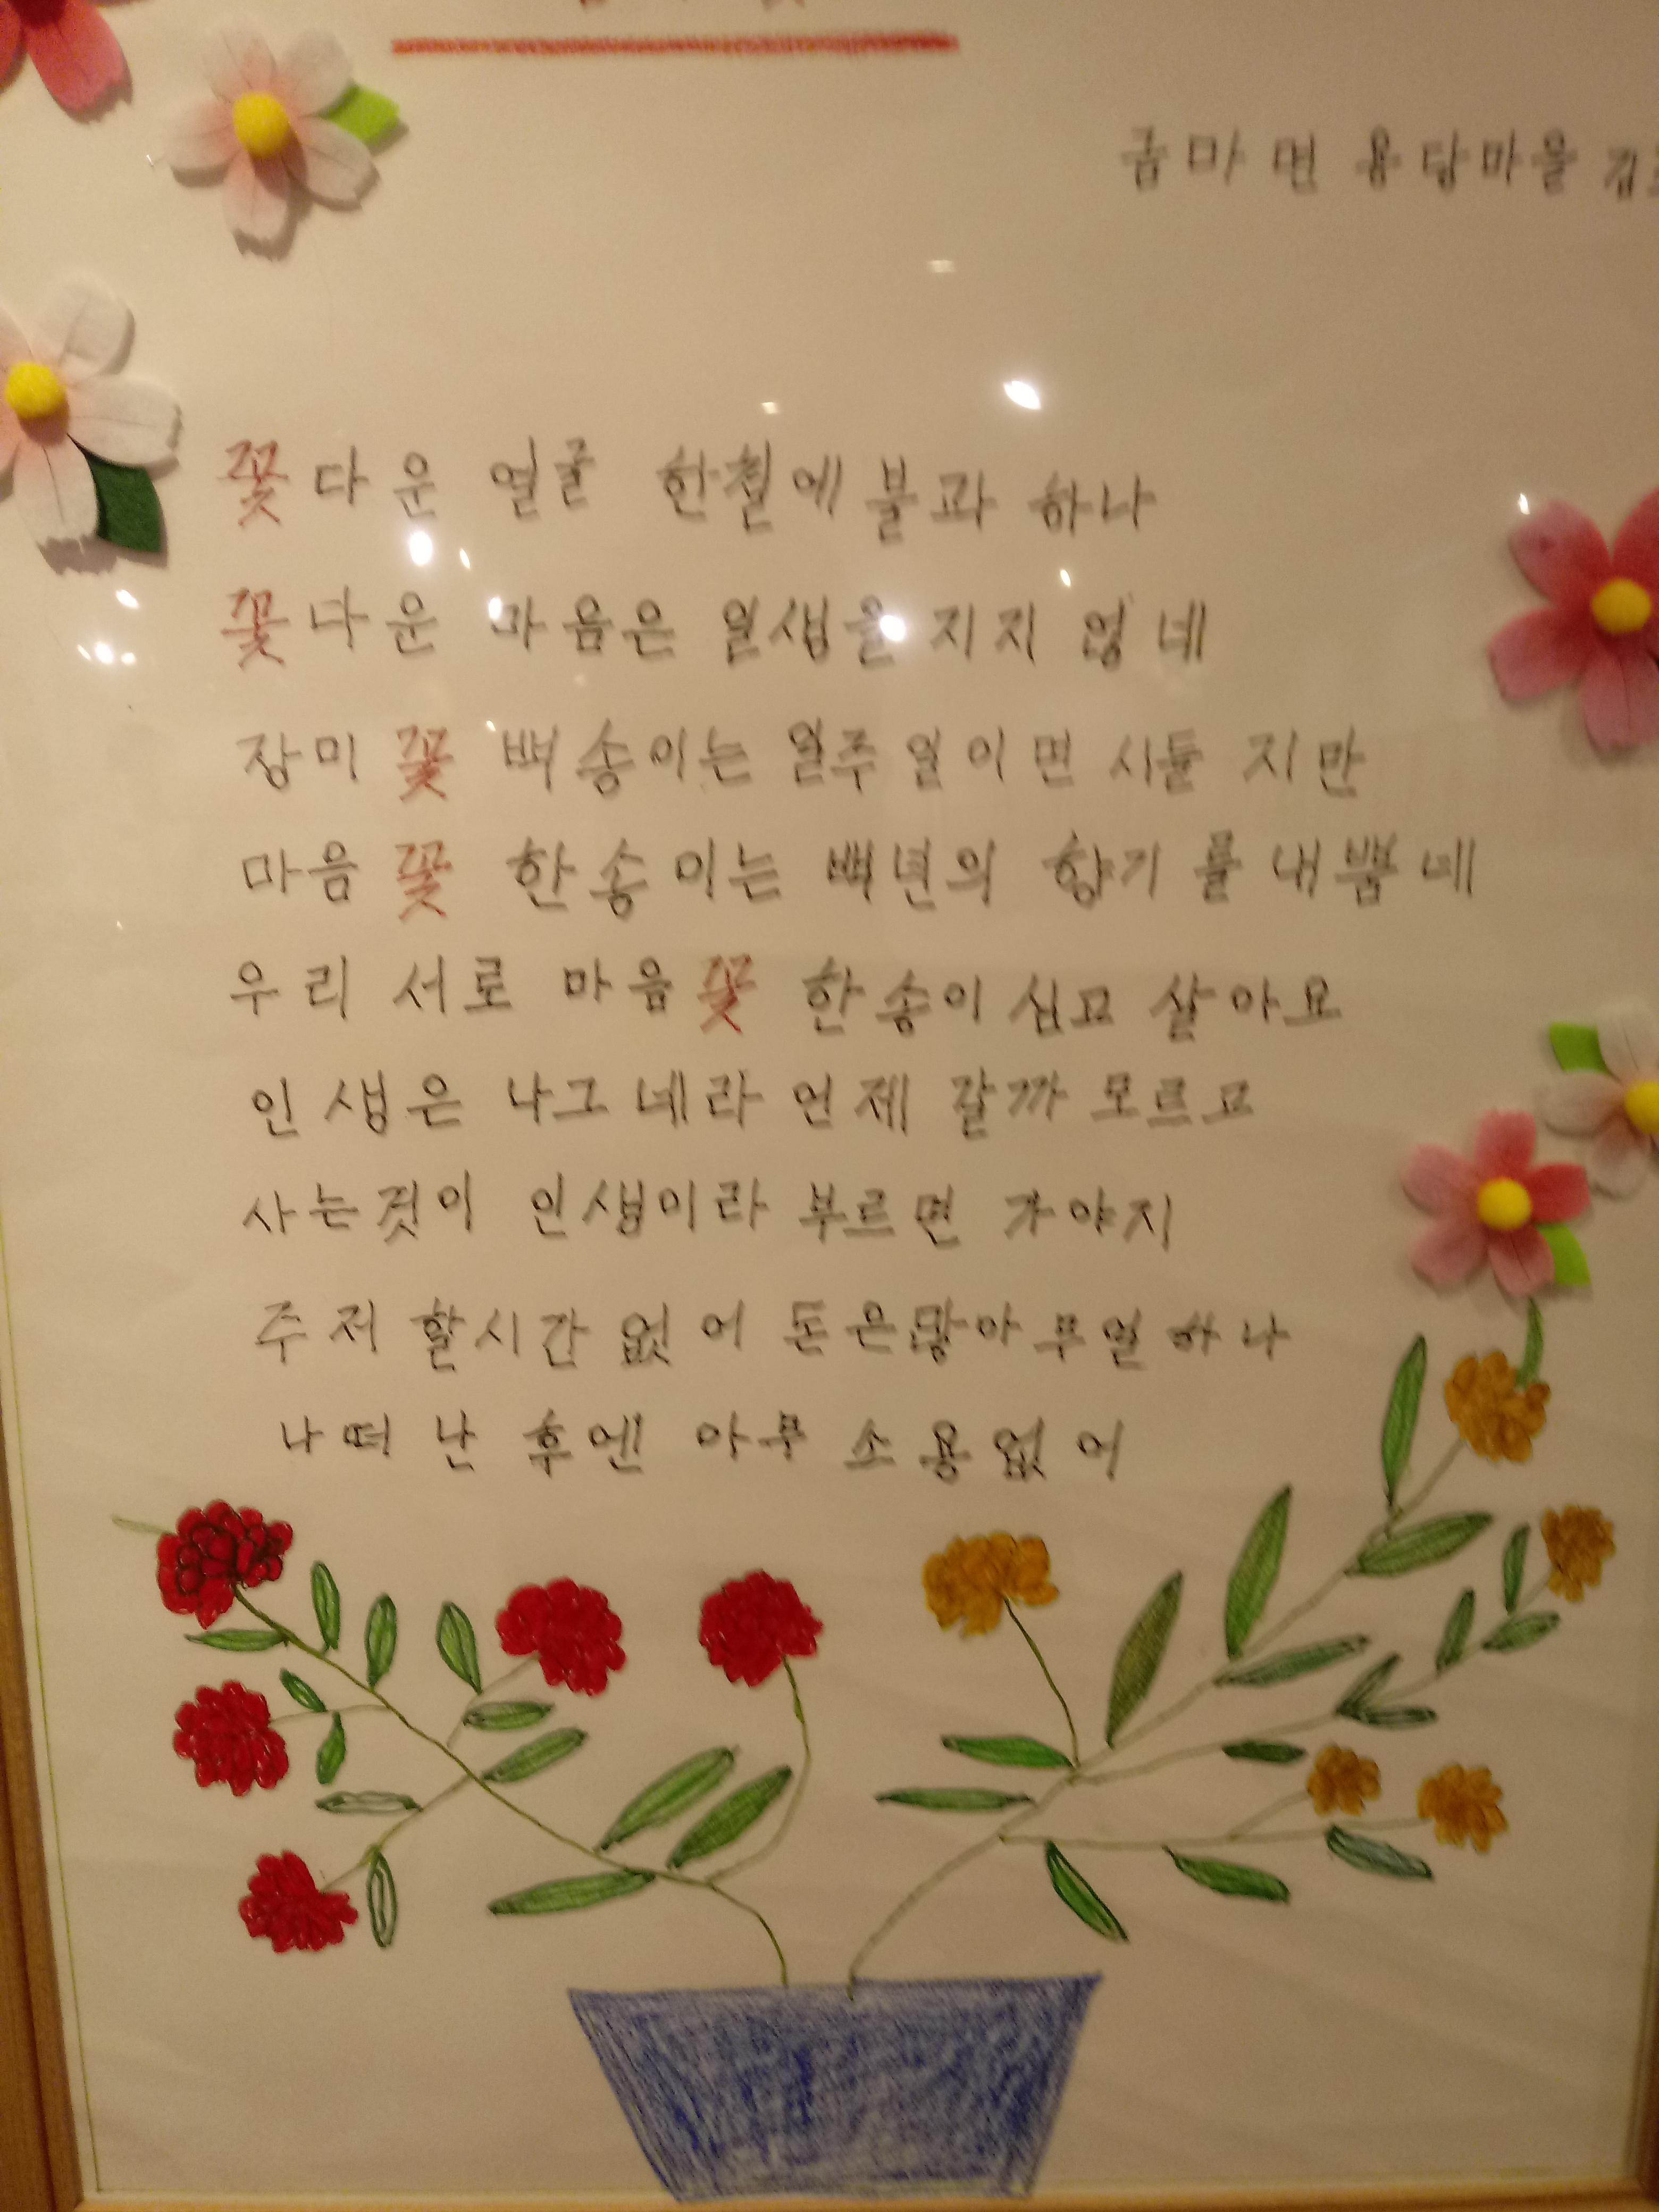 금마면 용담마을
꽃다운 얼굴 한철에 불과 하나
꽃다운 마음은 일생을 지지 않네
장미꽃 백송이는 일주일이면 시들 지만
마음꽃 한송이는 백년의 향기를 내뿜네
우리 서로 마음꽃 한송이 심고 살아요
인생은 나그네라 언제 갈까 모르고
사는것이 인생이라 부르면 가야지
주저 할시간 없어 돈은많아 무얼하나
나 떠난 후엔 아무 소용없어